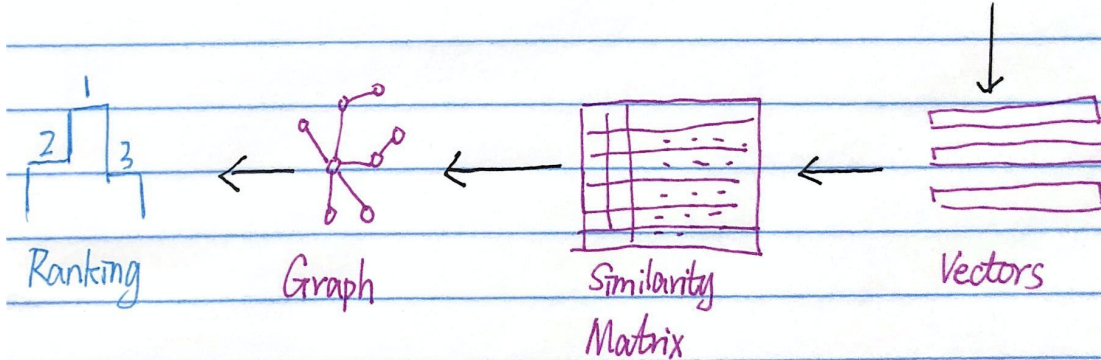 1
2
3
Ranking
Graph
Similarity
Matrix
Vectors